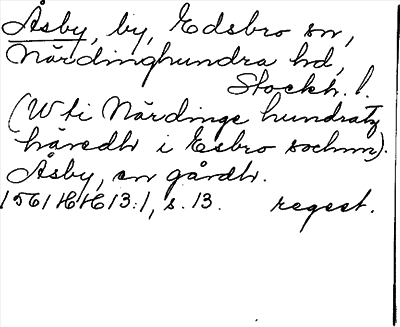 Åsby, by, Edsbro sn,
Närdinghundra hd,
Stockh. l.
(W ti Närdinge hundratz
häredh i Esbro sochnn).
Åsby, en gårdh.
1561 HH 13:1, s. 13. regest.